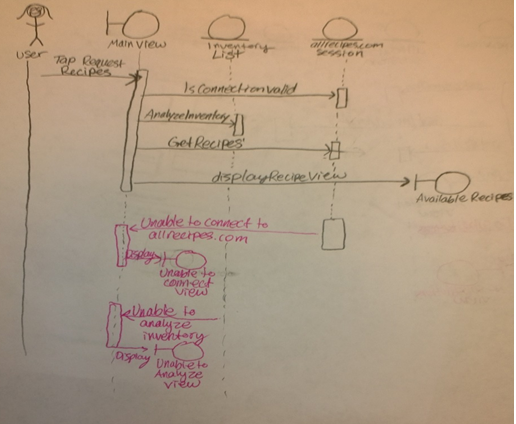 user
Main View
Inventory
List
allrecipes.com
Session
Tap Request
Recipes
IsConnectionValid
AnalyzeInventory
GetRecipes
displayRecipeView
Available Recipes
Unable to connect to
allrecipes.com
Display
Unable to
connect
view
Unable to
analyze
inventory
Display
Unable to
Analyze
view